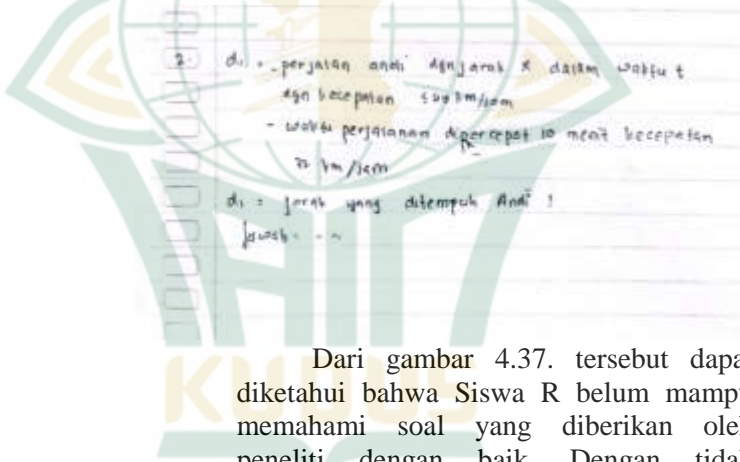 2. d₁ = - perjalan andi dgn jarak x dalam waktu t
dgn kecepatan km/jam
- waktu perjalanan dipercepat 10 menit kecepatan
72 km/jam
d₁ = jarak yang ditempuh Andi ?
Jawab -
Dari gambar 4.37. tersebut dapa
diketahui bahwa Siswa R belum mamp
memahami soal yang diberikan ole
peneliti dengan baik. Dengan tida
KUDUS